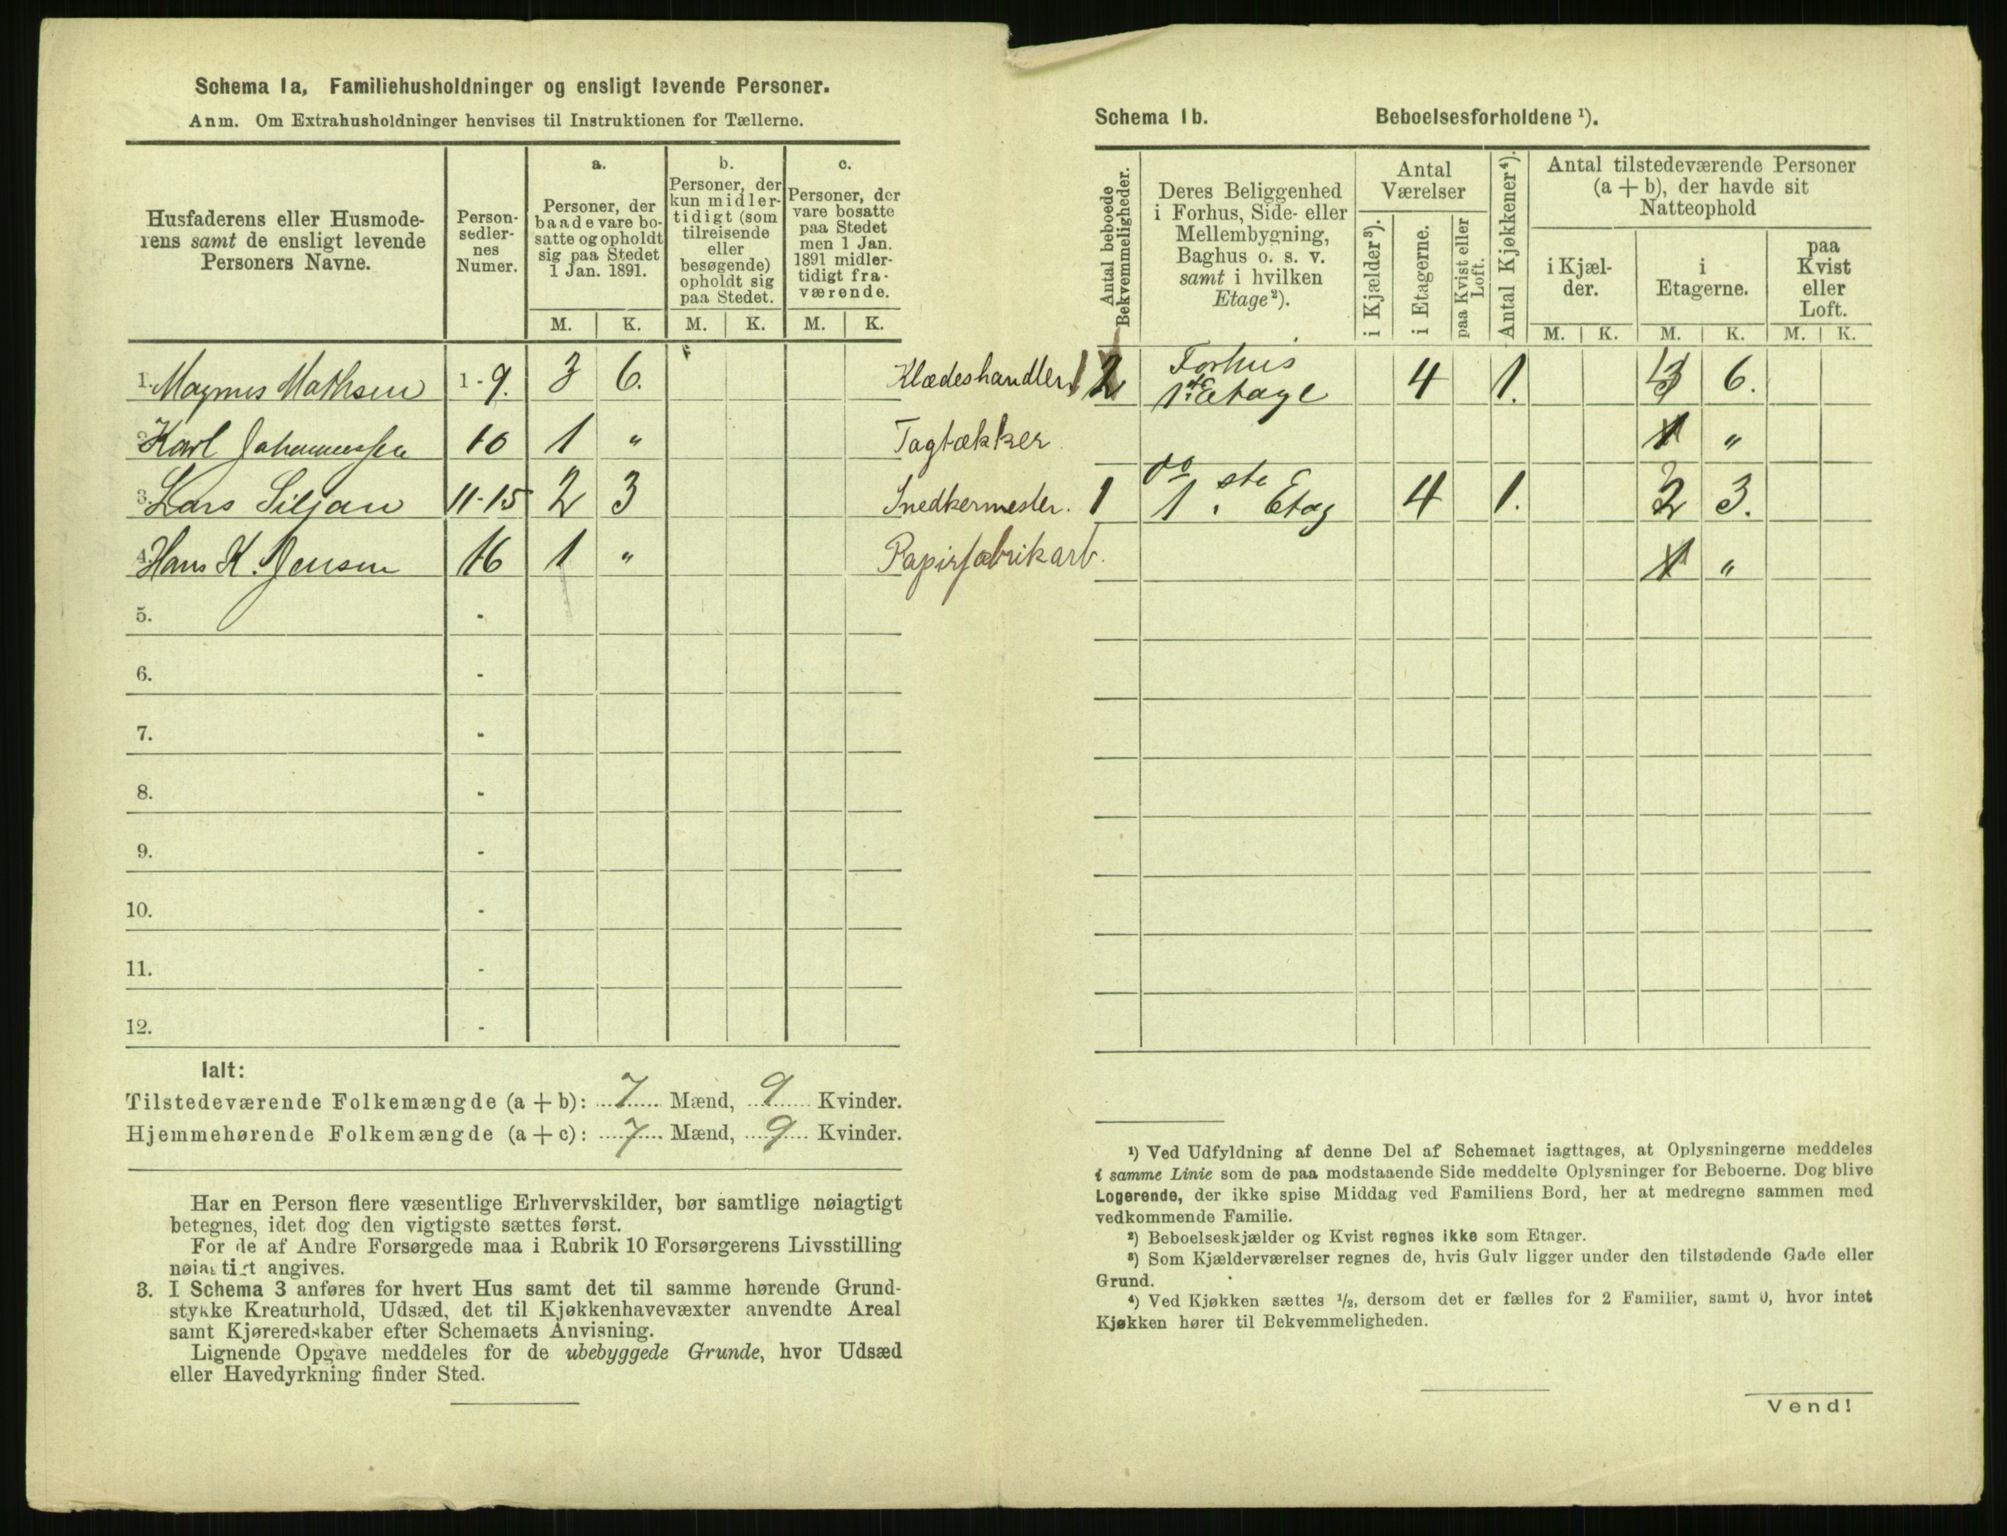 Schema 1a, Familiehusholdninger og ensligt levende Personer.
Anm. Om Extrahusholdninger henvises til Instruktionen for Tællerne.
Husfaderens eller Husmoderens samt de ensligt levende Personers Navne.
Personsedlernes Numer.
a. Personer, der baade vare bosatte og opholdt sig paa Stedet 1 Jan. 1891.
b. Personer, der kun midlertidigt (som tilreisende eller besøgende) opholdt sig paa Stedet.
c. Personer, der vare bosatte paa Stedet men 1 Jan. 1891 midlertidigt fraværende.
M. K. M. K. M. K.
1. Magnus Mathsen 1-9. 3 6. Klædeshandler
2. Karl Johannessen 10 1 " Tagtækker
3. Lars Siljan 11-15 2 3 Snedkermester.
4. Hans K. Jensen 16 1 " Papirfabrikarb.
5. -
6. -
7. -
8. -
9. -
10. -
11. -
12. -
Ialt:
Tilstedeværende Folkemængde (a + b): 7 Mænd, 9 Kvinder.
Hjemmehørende Folkemængde (a + c): 7 Mænd, 9 Kvinder.
Har en Person flere væsentlige Erhvervskilder, bør samtlige nøiagtigt
betegnes, idet dog den vigtigste sættes først.
For de af Andre Forsørgede maa i Rubrik 10 Forsørgerens Livsstilling
nøiagtigt angives.
3. I Schema 3 anføres for hvert Hus samt det til samme hørende Grund-
stykke Kreaturhold, Udsæd, det til Kjøkkenhavevæxter anvendte Areal
samt Kjøreredskaber efter Schemaets Anvisning.
Lignende Opgave meddeles for de ubebyggede Grunde, hvor Udsæd
eller Havedyrkning finder Sted.
Schema 1b. Beboelsesforholdene ¹).
Antal beboede Bekvemmeligheder.
Deres Beliggenhed i Forhus, Side- eller Mellembygning, Baghus o. s. v. samt i hvilken Etage²).
Antal Værelser
i Kjælder³).
i Etagerne.
paa Kvist eller Loft.
Antal Kjøkkener⁴).
Antal tilstedeværende Personer (a + b), der havde sit Natteophold
i Kjælder.
i Etagerne.
paa Kvist eller Loft.
M. K. M. K. M. K.
1 2 Forhus
1ste Etage 4 1. 6.
1 "
1 do 1ste Etag 4 1. 3.
1 "
¹) Ved Udfyldning af denne Del af Schemaet iagttages, at Oplysningerne meddeles
i samme Linie som de paa modstaaende Side meddelte Oplysninger for Beboerne. Dog blive
Logerende, der ikke spise Middag ved Familiens Bord, her at medregne sammen med
vedkommende Familie.
²) Beboelseskjælder og Kvist regnes ikke som Etager.
³) Som Kjælderværelser regnes de, hvis Gulv ligger under den tilstødende Gade eller
Grund.
⁴) Ved Kjøkken sættes ½, dersom det er fælles for 2 Familier, samt 0, hvor intet
Kjøkken hører til Bekvemmeligheden.
Vend!